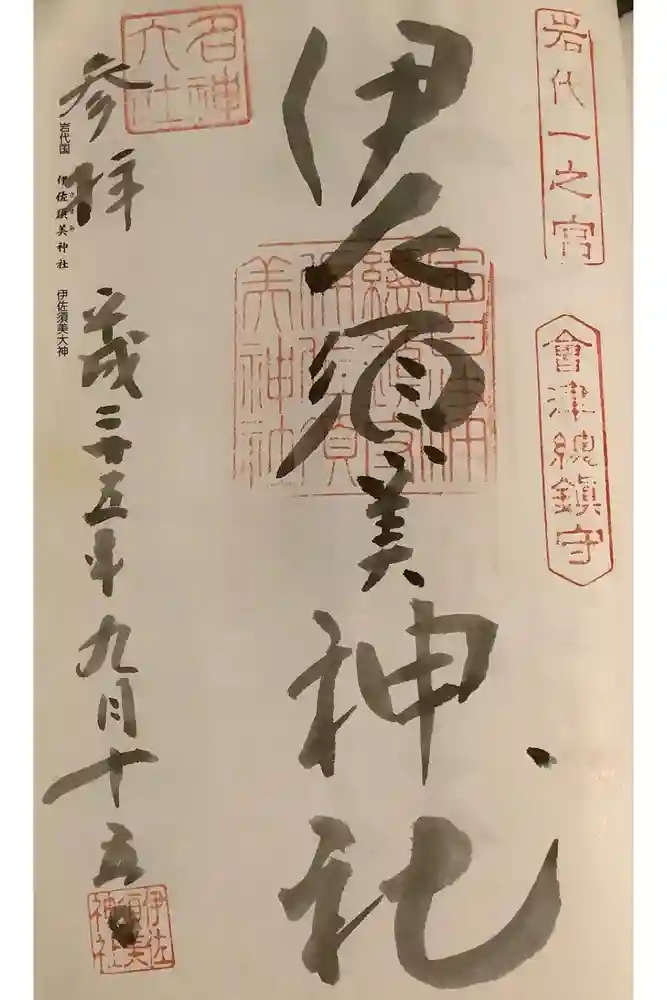 岩代一之宮
會津總鎮守
伊佐須美神社
名神大社
参拝
平成二十五年九月十五日
岩代国 伊佐須美神社 伊佐須美大神
いさすみ
伊佐須美神社